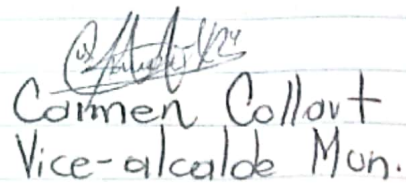 Carmen Collart
Vice-alcalde Mun.